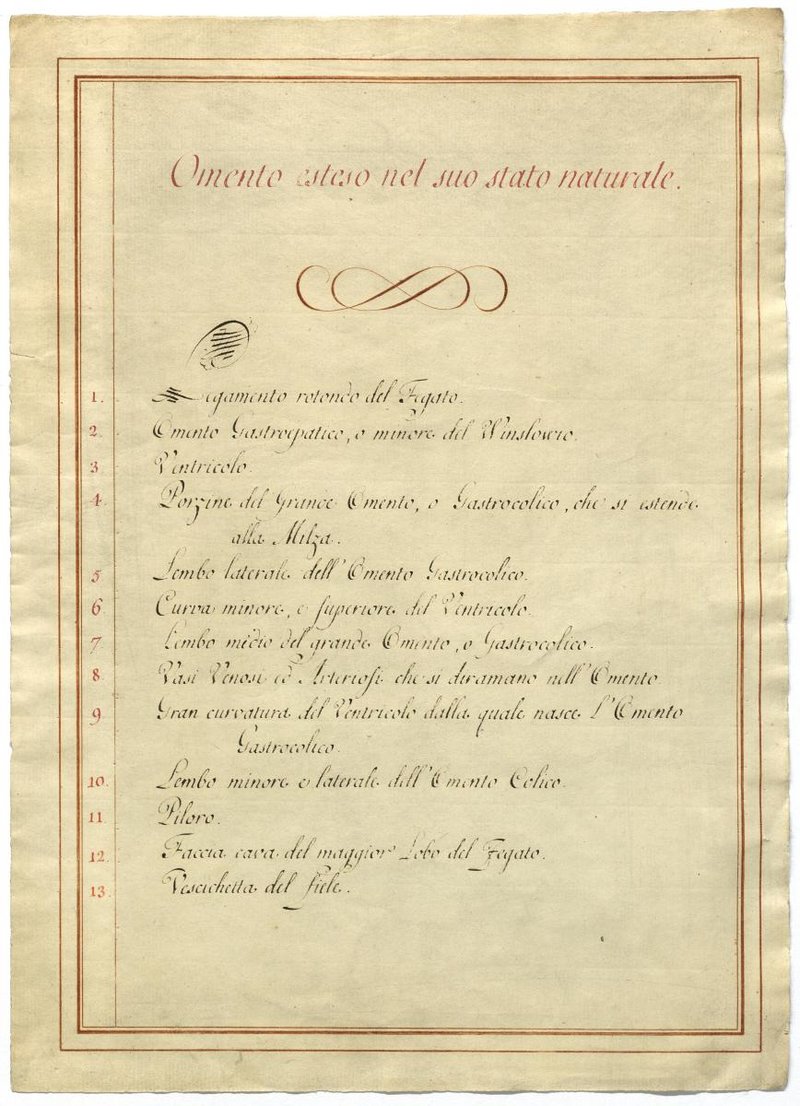 Omento esteso nel suo stato naturale.
1. Legamento rotondo del Fegato.
2. Omento Gastroepatico, o minore del Winslowio.
3 Ventricolo.
4. Porzine del grande Omento, o Gastrocolico, che si estende
alla Milza.
5 Lembo laterale dell'Omento Gastrocolico.
6 Curva minore, e superiore del Ventricolo.
7 Lembo medio del grande Omento, o Gastrocolico.
8 Vasi Venosi ed Arteriosi che si diramano nell'Omento
9 Gran curvatura del Ventricolo dalla quale nasce l'Omento
Gastrocolico.
10. Lembo minore e laterale dell'Omento Colico.
11 Piloro.
12. Faccia cava del maggior Lobo del Fegato.
13. Vescichetta del fiele.